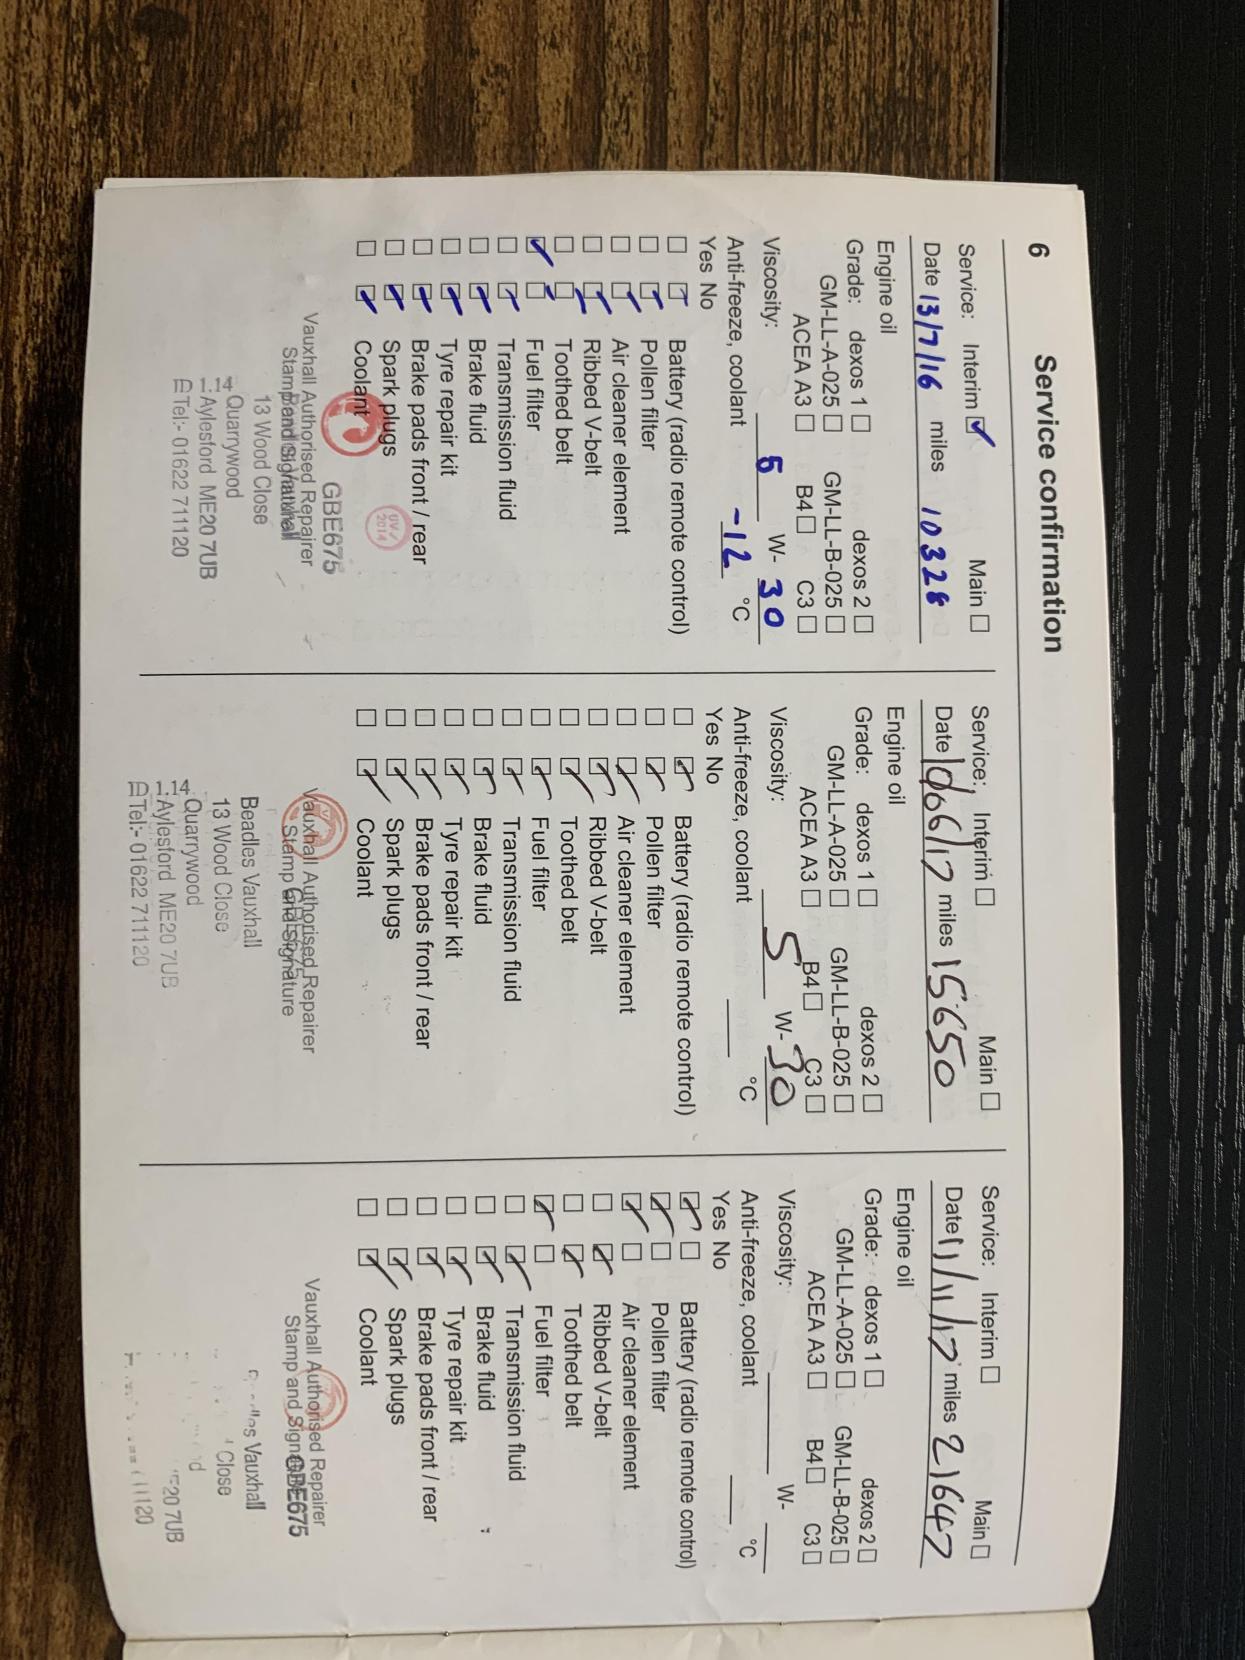 6 Service confirmation
Service: Interim Main
Date 13/7/16 miles 10328
Engine oil
Grade: dexos 1 dexos 2
GM-LL-A-025 GM-LL-B-025
ACEA A3 B4 C3
Viscosity: 5 W- 30
Anti-freeze, coolant -12 °C
Yes No
Battery (radio remote control)
Pollen filter
Air cleaner element
Ribbed V-belt
Toothed belt
Fuel filter
Transmission fluid
Brake fluid
Tyre repair kit
Brake pads front / rear
Spark plugs
Coolant
UV/ 2014
GBE675
Vauxhall Authorised Repairer
Stamp and Signature
13 Wood Close
Quarrywood
Aylesford ME20 7UB
Tel:- 01622 711120
Service: Interim Main
Date 10/06/17 miles 15650
Engine oil
Grade: dexos 1 dexos 2
GM-LL-A-025 GM-LL-B-025
ACEA A3 B4 C3
Viscosity: 5 W- 30
Anti-freeze, coolant °C
Yes No
Battery (radio remote control)
Pollen filter
Air cleaner element
Ribbed V-belt
Toothed belt
Fuel filter
Transmission fluid
Brake fluid
Tyre repair kit
Brake pads front / rear
Spark plugs
Coolant
Vauxhall Authorised Repairer
Stamp and Signature
Beadles Vauxhall
13 Wood Close
Quarrywood
Aylesford ME20 7UB
Tel:- 01622 711120
Service: Interim Main
Date 11/11/17 miles 21647
Engine oil
Grade: dexos 1 dexos 2
GM-LL-A-025 GM-LL-B-025
ACEA A3 B4 C3
Viscosity: W-
Anti-freeze, coolant °C
Yes No
Battery (radio remote control)
Pollen filter
Air cleaner element
Ribbed V-belt
Toothed belt
Fuel filter
Transmission fluid
Brake fluid
Tyre repair kit
Brake pads front / rear
Spark plugs
Coolant
Vauxhall Authorised Repairer
Stamp and
GBE675
Vauxhall
Close
7UB